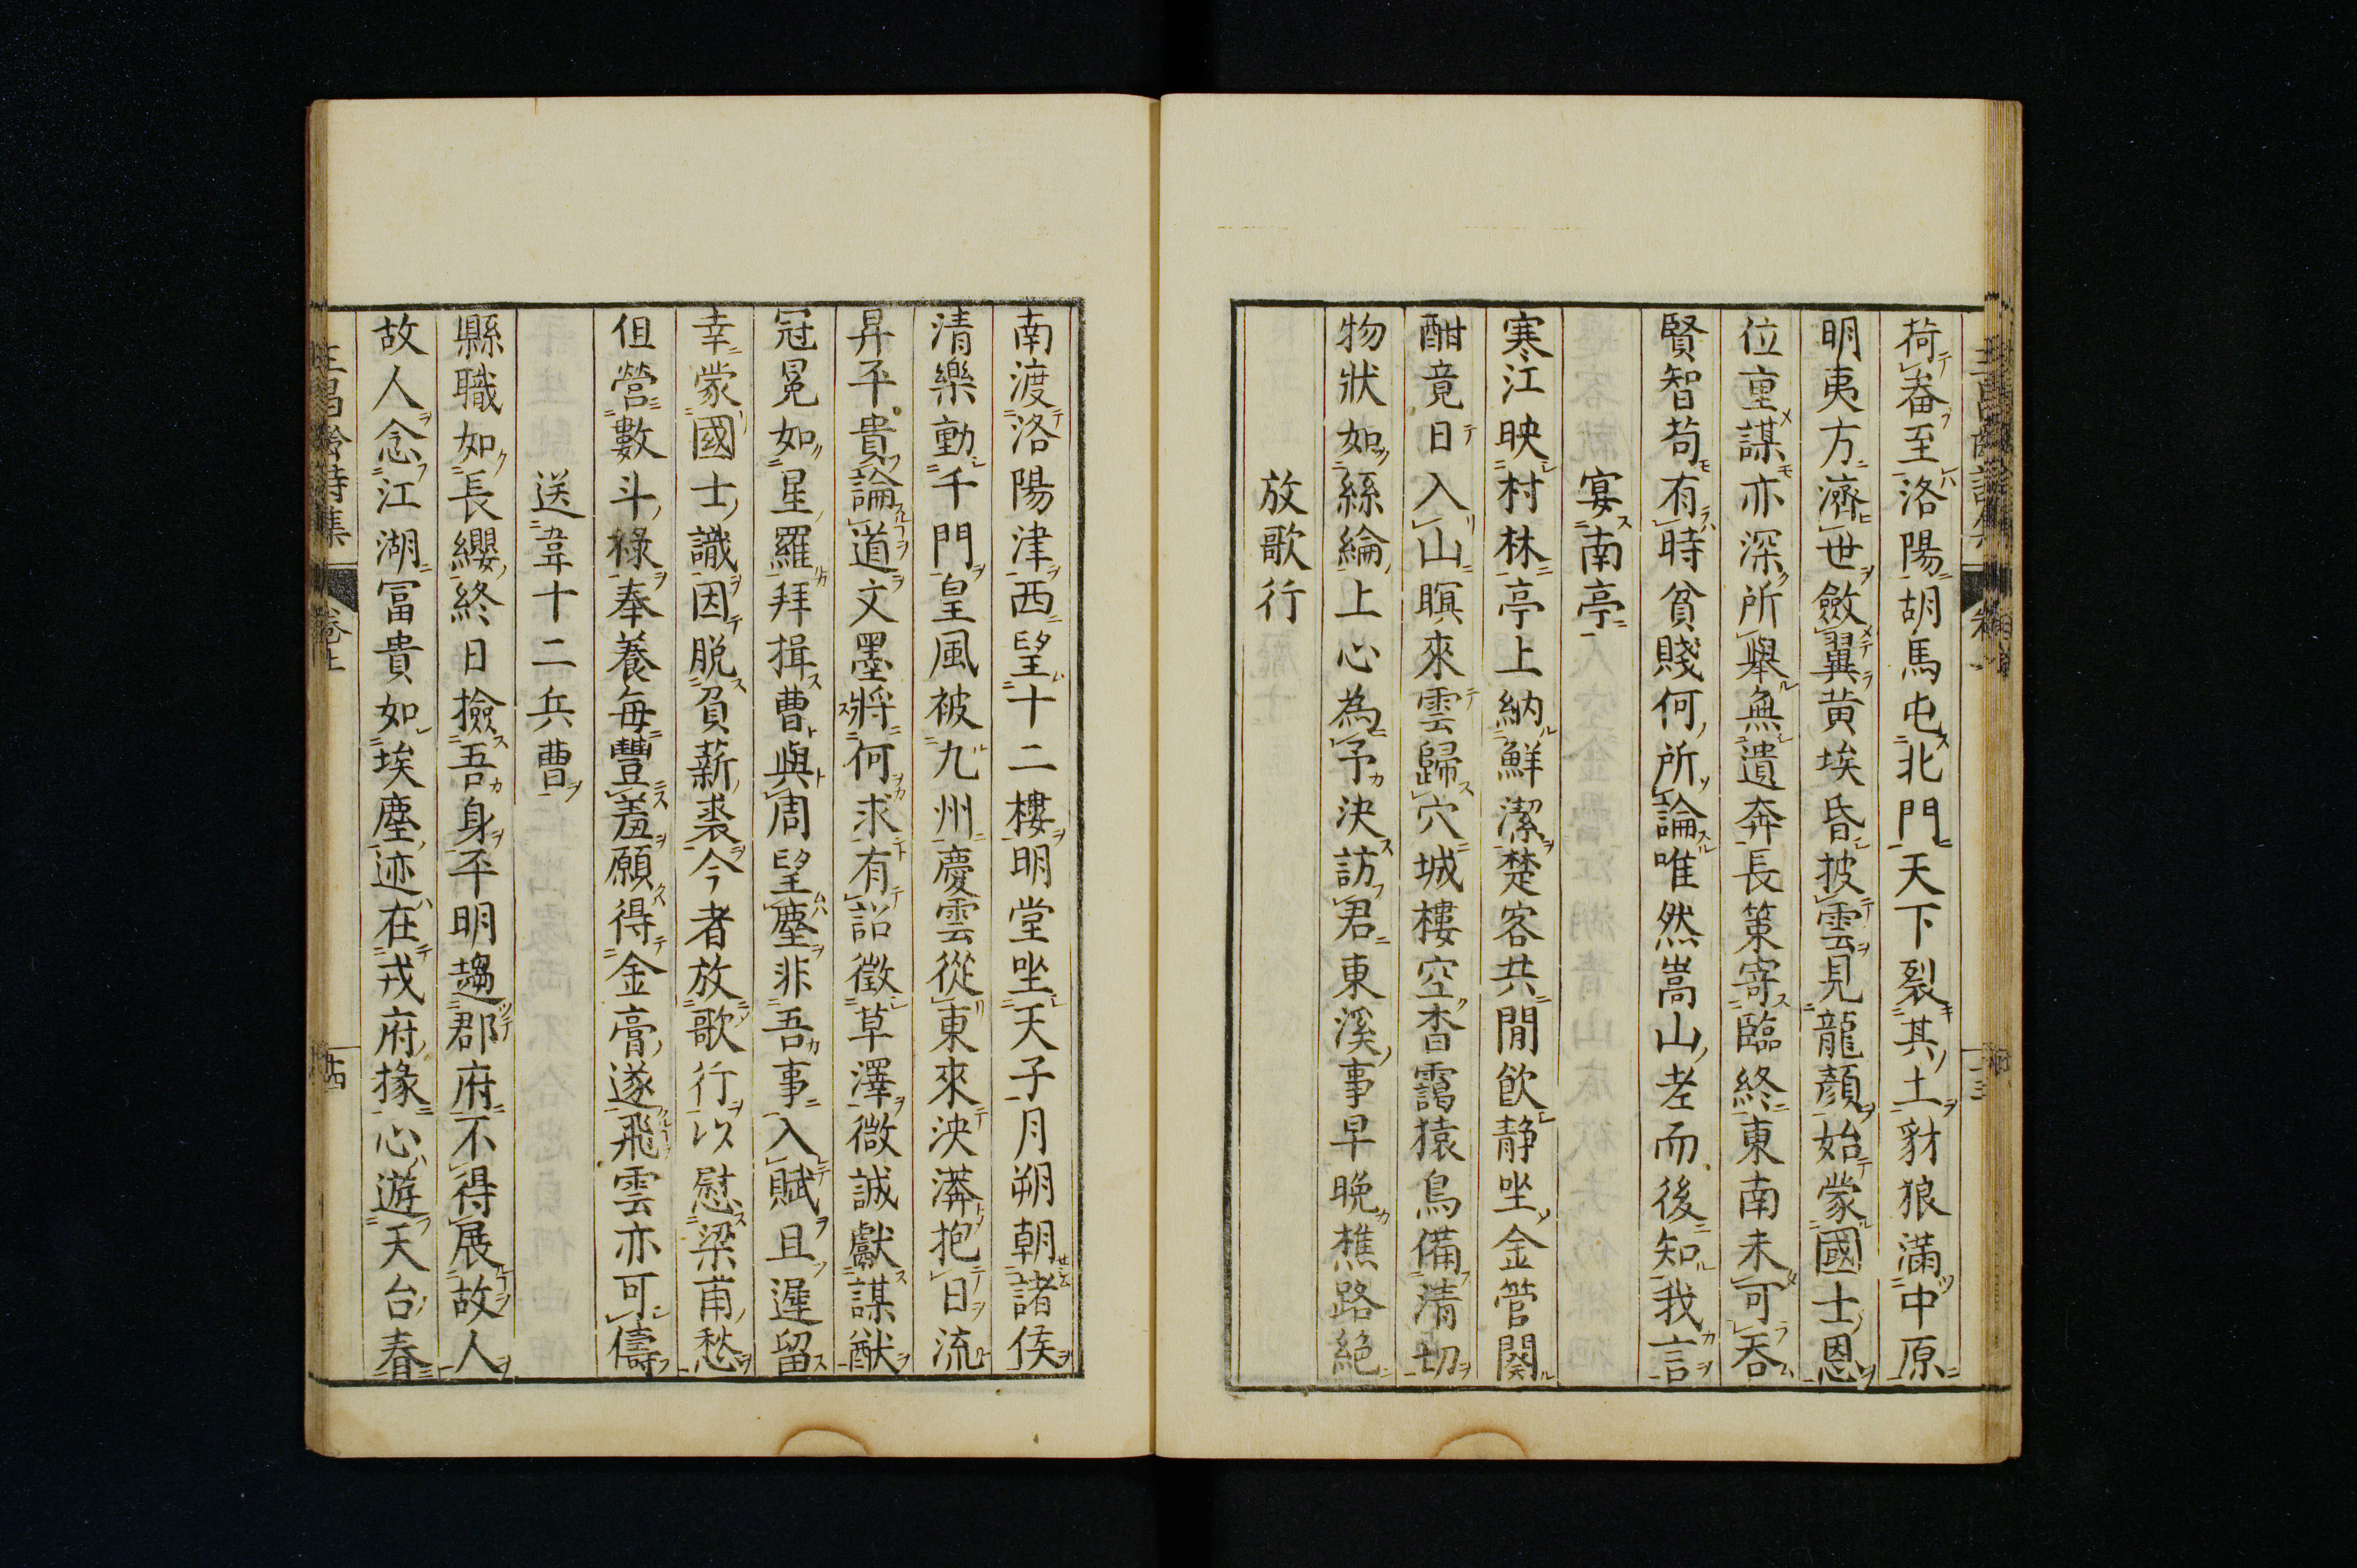 荷畚至洛陽胡馬屯北門天下裂其土豺狼滿中原
明夷方濟世斂翼黄埃昏披雲見龍顏始蒙國士恩
位重謀亦深所舉無遺奔長策寄臨終東南未可吞
賢智苟有時貧賤何所論唯然嵩山老而後知我言
宴南亭
寒江映村林亭上納鮮潔楚客共閒飲静坐金管闋
酣竟日入山暝來雲歸穴城樓空杳靄猿鳥備清切
物狀如絲綸上心為予決訪君東溪事早晚樵路絕
放歌行
南渡洛陽津西望十二樓明堂坐天子月朔朝諸侯
清樂動千門皇風被九州慶雲從東來泱漭抱日流
昇平貴論道文墨將何求有詔徵草澤微誠獻謀猷
冠冕如星羅拜揖曹與周望塵非吾事入賦且遲留
幸蒙國士識因脱負薪裘今者放歌行以慰梁甫愁
但營數斗祿奉養每豐羞願得金膏遂飛雲亦可儔
送韋十二兵曹
縣職如長纓終日檢吾身平明趨郡府不得展故人
故人念江湖富貴如埃塵迹在戎府掾心遊天台春
王昌齡詩集 卷上 十四